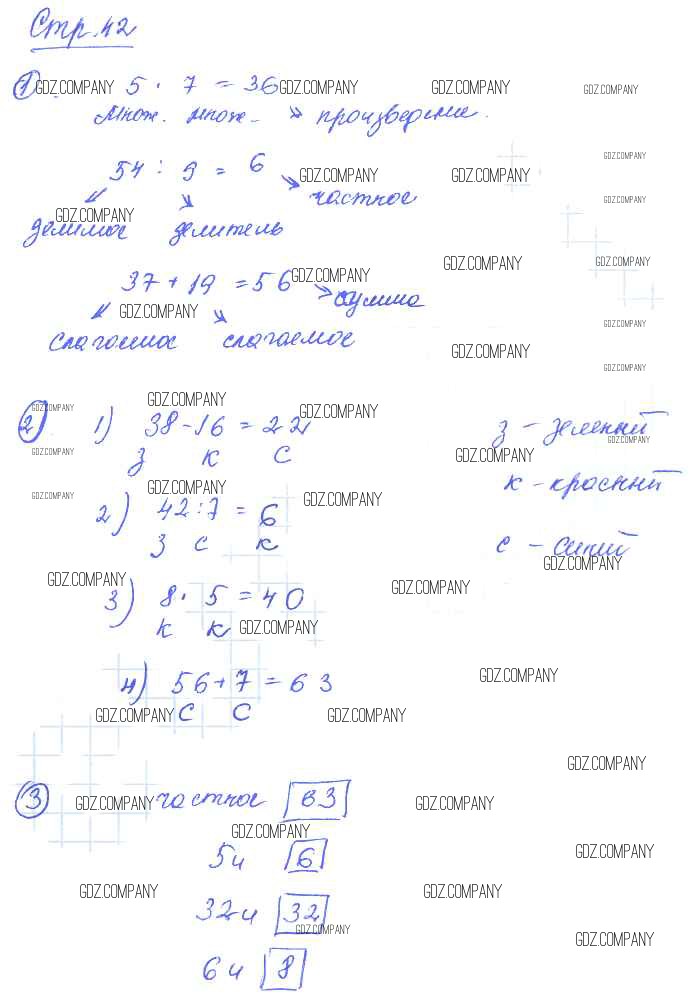 Стр. 42
1 5 · 7 = 36
Множ. множ. произведение.
54 : 9 = 6
частное
делимое делитель
37 + 19 = 56
сумма
слагаемое слагаемое
2 1) 38 - 16 = 22 з - зеленый
з к с
к - красный
2) 42 : 7 = 6
з с к с - синий
3) 8 · 5 = 40
к к
4) 56 + 7 = 63
с с
3 частное в 3
5 и 6
32 и 32
6 и 8
GDZ.COMPANY